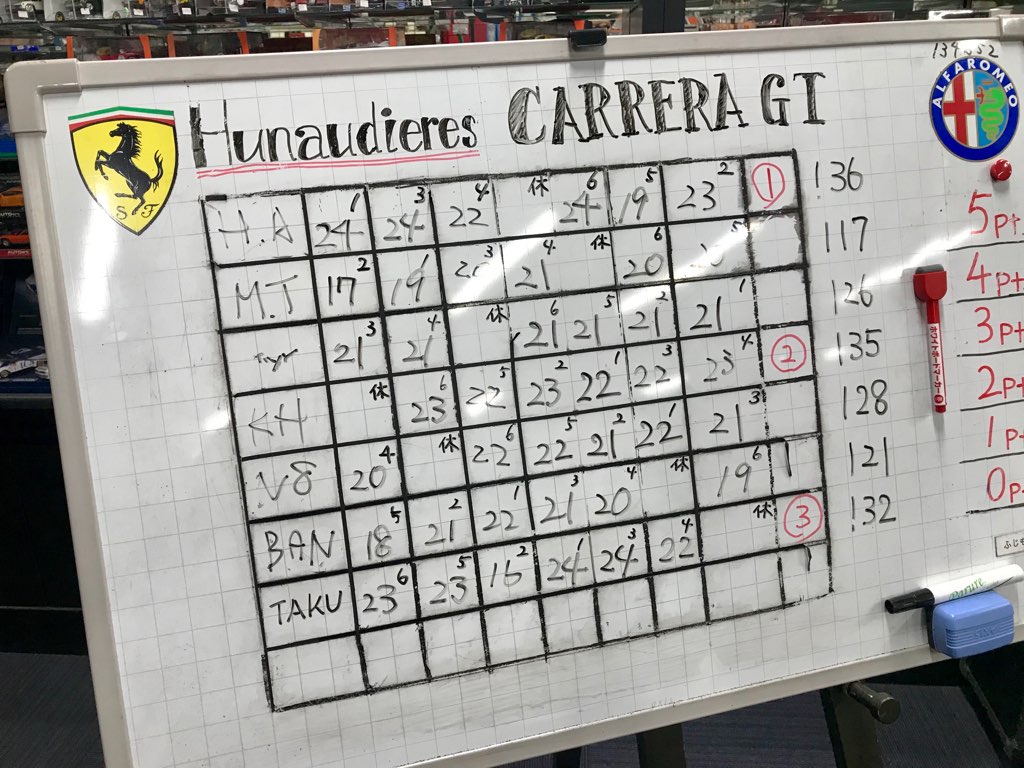 134352
Hunaudieres CARRERA GT
ALFA ROMEO
S F
H.A 24 1 24 3 22 4 休 24 6 19 5 23 2 ① 136
M.J 17 2 19 1 20 3 21 4 休 20 6 20 5 117
21 3 21 4 休 21 6 21 5 21 2 21 1 126
KH 休 23 6 22 5 23 2 22 1 22 3 23 4 ② 135
V8 20 4 休 22 6 22 5 21 2 22 1 21 3 128
BAN 18 5 21 2 22 1 21 3 20 4 休 19 6 121
TAKU 23 6 23 5 16 2 24 1 24 3 22 4 休 ③ 132
5Pt
4Pt
3Pt
2Pt
1P
0P
ホワイトボードマーカー